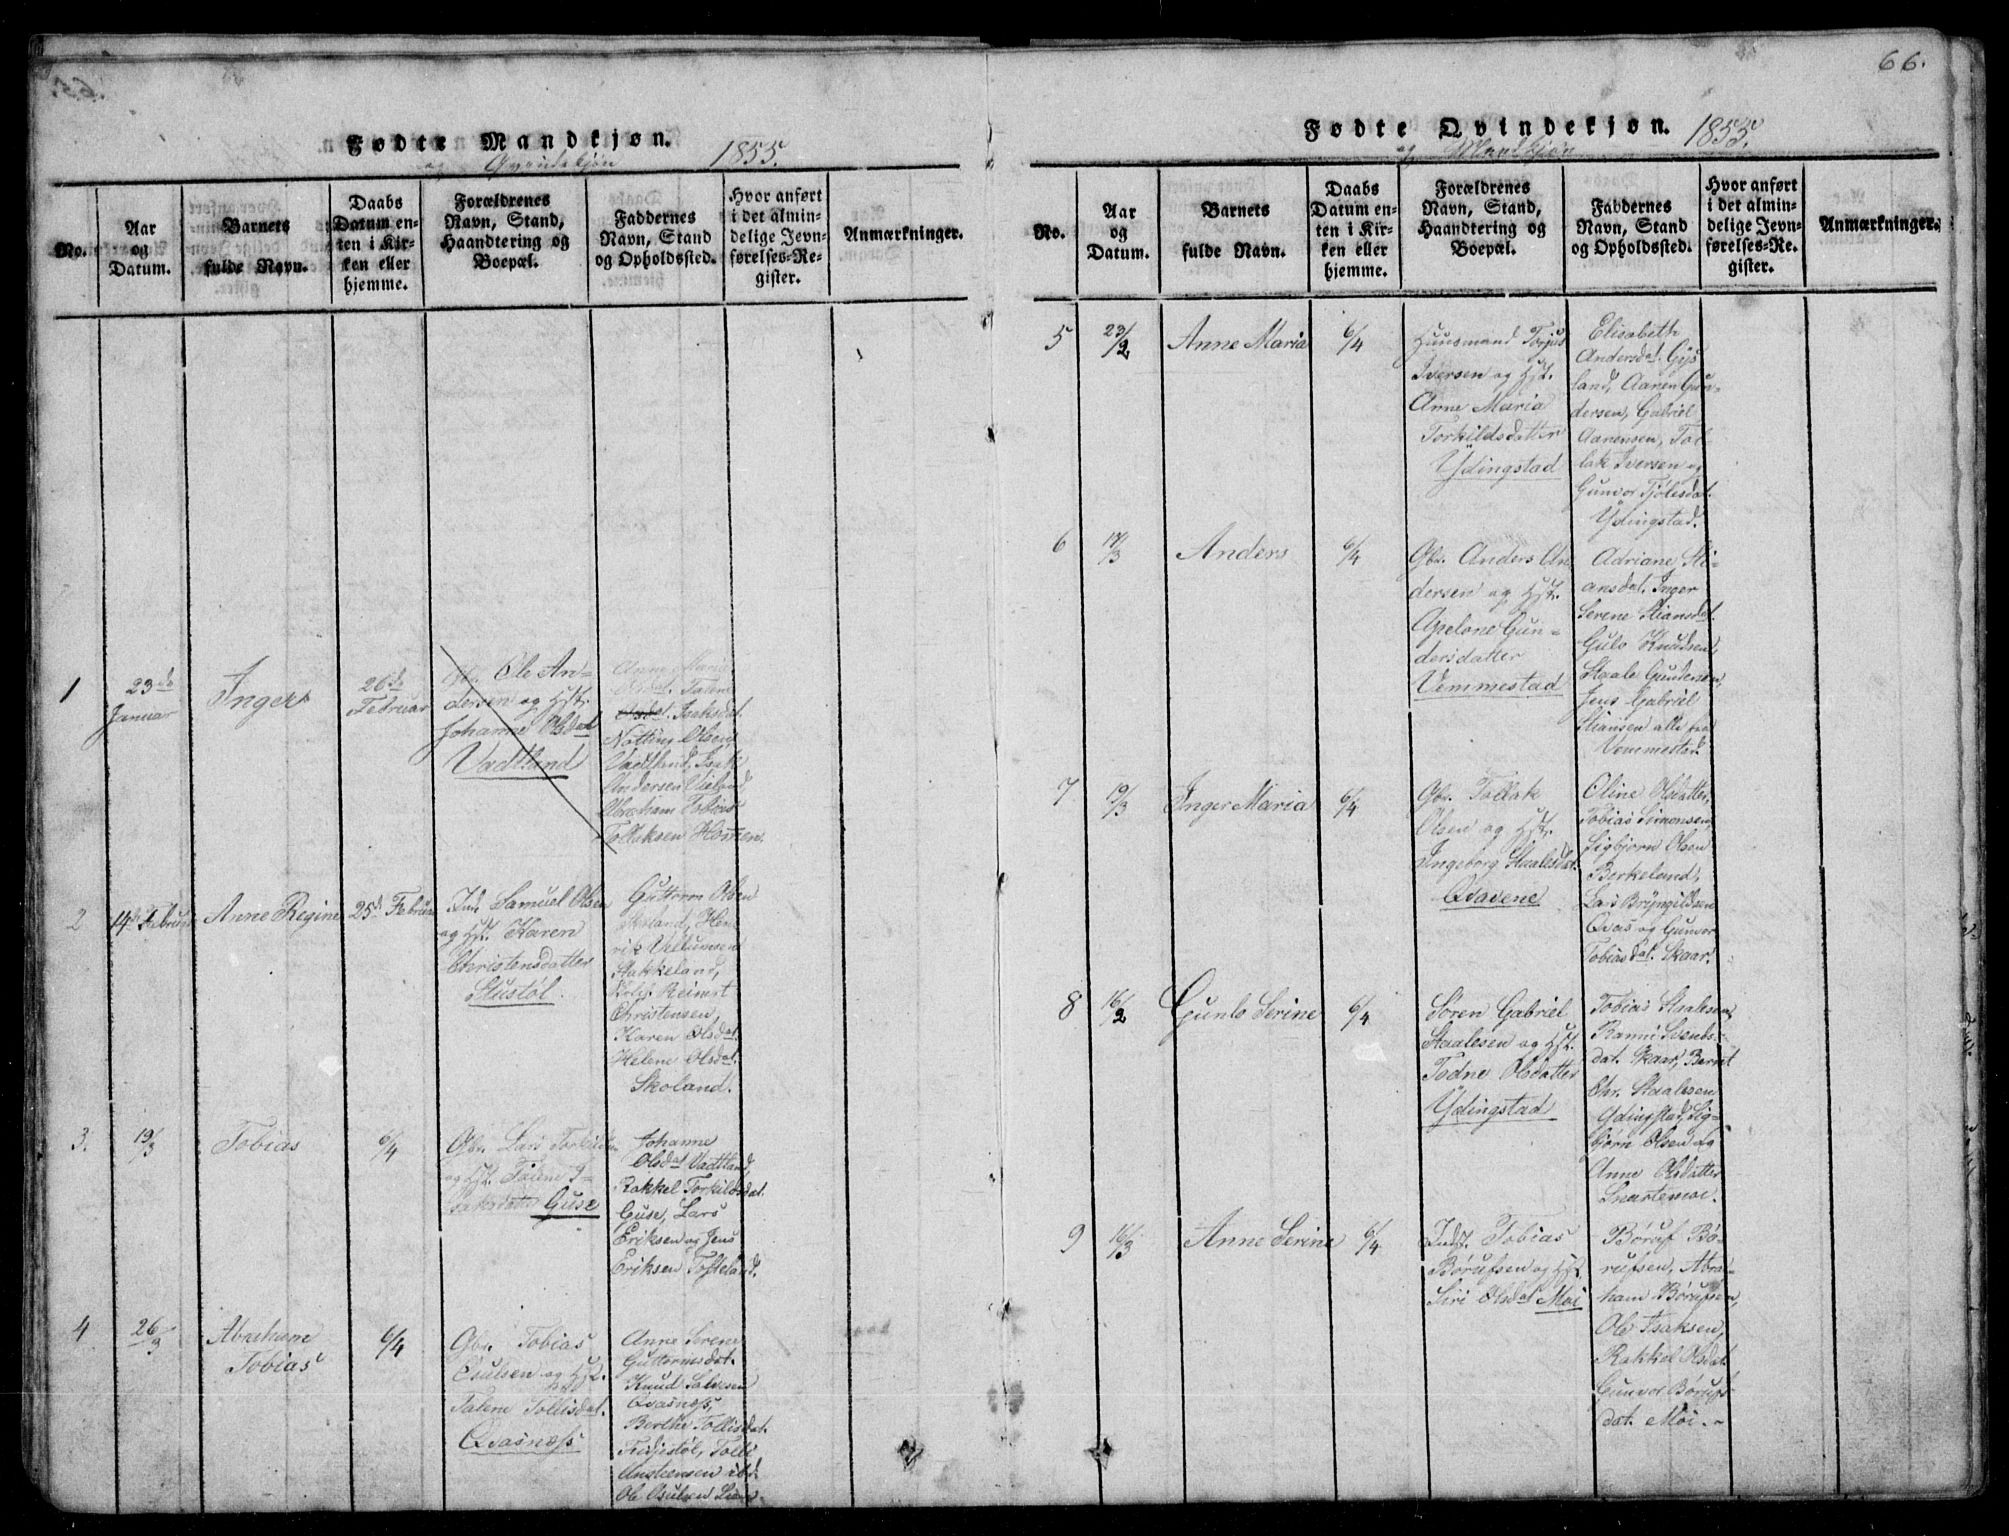 66.
Fødte Mandkjøn.
og Qvindekjøn 1855.
No.
Aar
og
Datum.
Barnets
fulde Navn.
Daabs
Datum en-
ten i Kir-
ken eller
hjemme.
Forældrenes
Navn, Stand,
Haandtering og
Boepæl.
Faddernes
Navn, Stand
og Opholdssted.
Hvor anført
i det almin-
delige Jevn-
førelses-Re-
gister.
Anmærkninger.
1
23de
Januar
Inger
26de
Februar
Ole An-
dersen og Hst.
Johanne Olsdat
Vadtland
Anne Maria
Talene
Isaksdat.
Olsen
Vadtland, Isak
Andersen
Abraham Tobias
Tollaksen
2
14de Februar
Anne Regine
25de Februar
Ind. Samuel Olsen
og Hst. Karen
Christensdatter
Stustøl.
Guttorm Olsen
Hen-
rik
Stakkeland,
Reinert
Christensen,
Karen Olsdat.
Helene Olsdat.
Skoland.
3.
19/3
Tobias
6/4
Gbr. Lars Torkilds
og Hst. Talene I-
saksdatter Guse
Johanne
Olsdat Vadtland,
Rakkel Torkildsdat.
Guse, Lars
Eriksen og Jens
Eriksen Tofteland.
4
26/3
Abraham
Tobias
6/4
Gbr. Tobias
Osulsen og Hst.
Talene Tollisdat.
Qvasnæss
Anne Serene
Guttormsdat.
Knud Salvesen
Qvasnæss,
Berthe Tollisdat.
Tolli
Anstensen ibd.
Ole Osulsen
Fødte Qvindekjøn. 1855.
og Mandkjøn
No.
Aar
og
Datum.
Barnets
fulde Navn.
Daabs
Datum en-
ten i Kir-
ken eller
hjemme.
Forældrenes
Navn, Stand,
Haandtering og
Boepæl.
Faddernes
Navn, Stand
og Opholdssted.
Hvor anført
i det almin-
delige Jevn-
førelses-Re-
gister.
Anmærkninger.
5
23/2
Anne Maria
6/4
Huusmand Torjus
Iversen og Hst.
Anne Maria
Torkildsdatter
Ydingstad
Elisabeth
Andersdat. Gys
land, Aanen Gun-
dersen, Gabriel
Aanensen, Tol
lak Iversen og
Gunvor Tjølesdat.
Ydingstad.
6
17/3
Anders
6/4
Gbr. Anders An
dersen og Hst.
Apelone Gun-
dersdatter
Vemmestad
Adriane Sti-
ansdat. Inger
Serene Stiansdat.
Gulo Knudsen,
Staale Gundersen,
Jens Gabriel
Stiansen alle fra
Vemmestad.
7
19/3
Inger Maria
6/4
Gbr. Tollak
Olsen og Hst.
Ingeborg Staalesdat.
Qvavene
Oline Olsdatter,
Tobias Simonsen,
Sigbjørn Olsen
Berkeland,
Lars Bryngildsen
Qvas og Gunvor
Tobiasdat. Skaar.
8
16/2
Gunlo Serine
6/4
Søren Gabriel
Staalesen og Hst.
Todne Olsdatter
Ydingstad
Tobias Staalesen
Svends-
dat. Skaar, Bernt
Chr. Staalesen
Ydingstad, Sig-
bjørn Olsen og
Anne Olsdatter
Snartemoe.
9
16/3
Anne Serine
6/4
Indst. Tobias
Børufsen og Hst
Siri Olsdat Moi
Børuf Bø-
rufsen, Abra-
ham Børufsen,
Ole Isaksen,
Rakkel Olsdat.
Gunvor Børufs
dat. Moi.